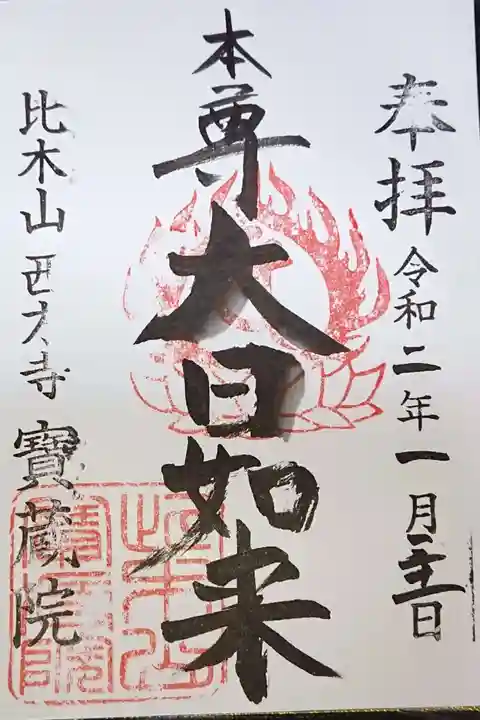 奉拝
令和二年一月日
本尊 大日如来
比木山 西大寺 寶蔵院
比木山